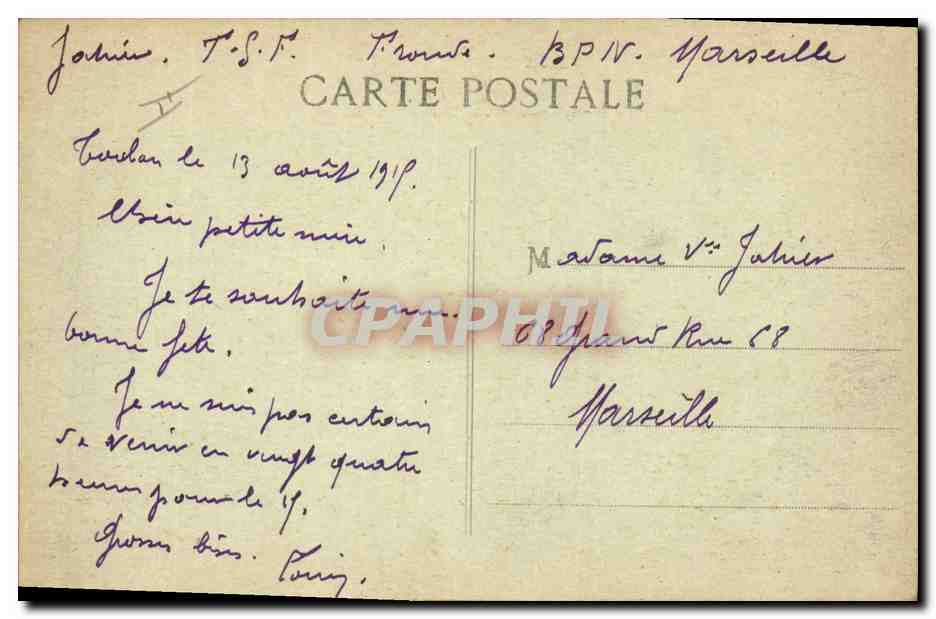 Jahier. T.S.F. Fronde. BPN. Marseille
CARTE POSTALE
Toulon le 13 août 1915.
Chère petite mère.
Je te souhaite une
bonne fête.
Je ne suis pas certain
de venir en vingt quatre
heures pour le 15.
Grosses bises.
Madame Vve Jahier
68 Grand Rue 68
Marseille
CPAPHIL